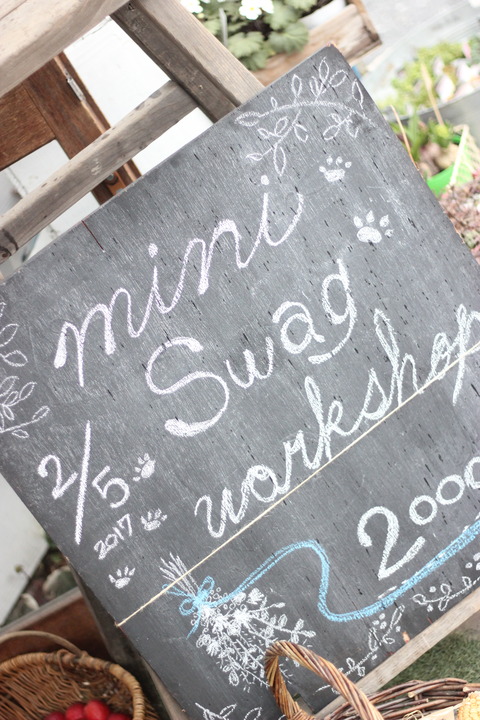 mini
Swag
workshop
2/5
2017
2000